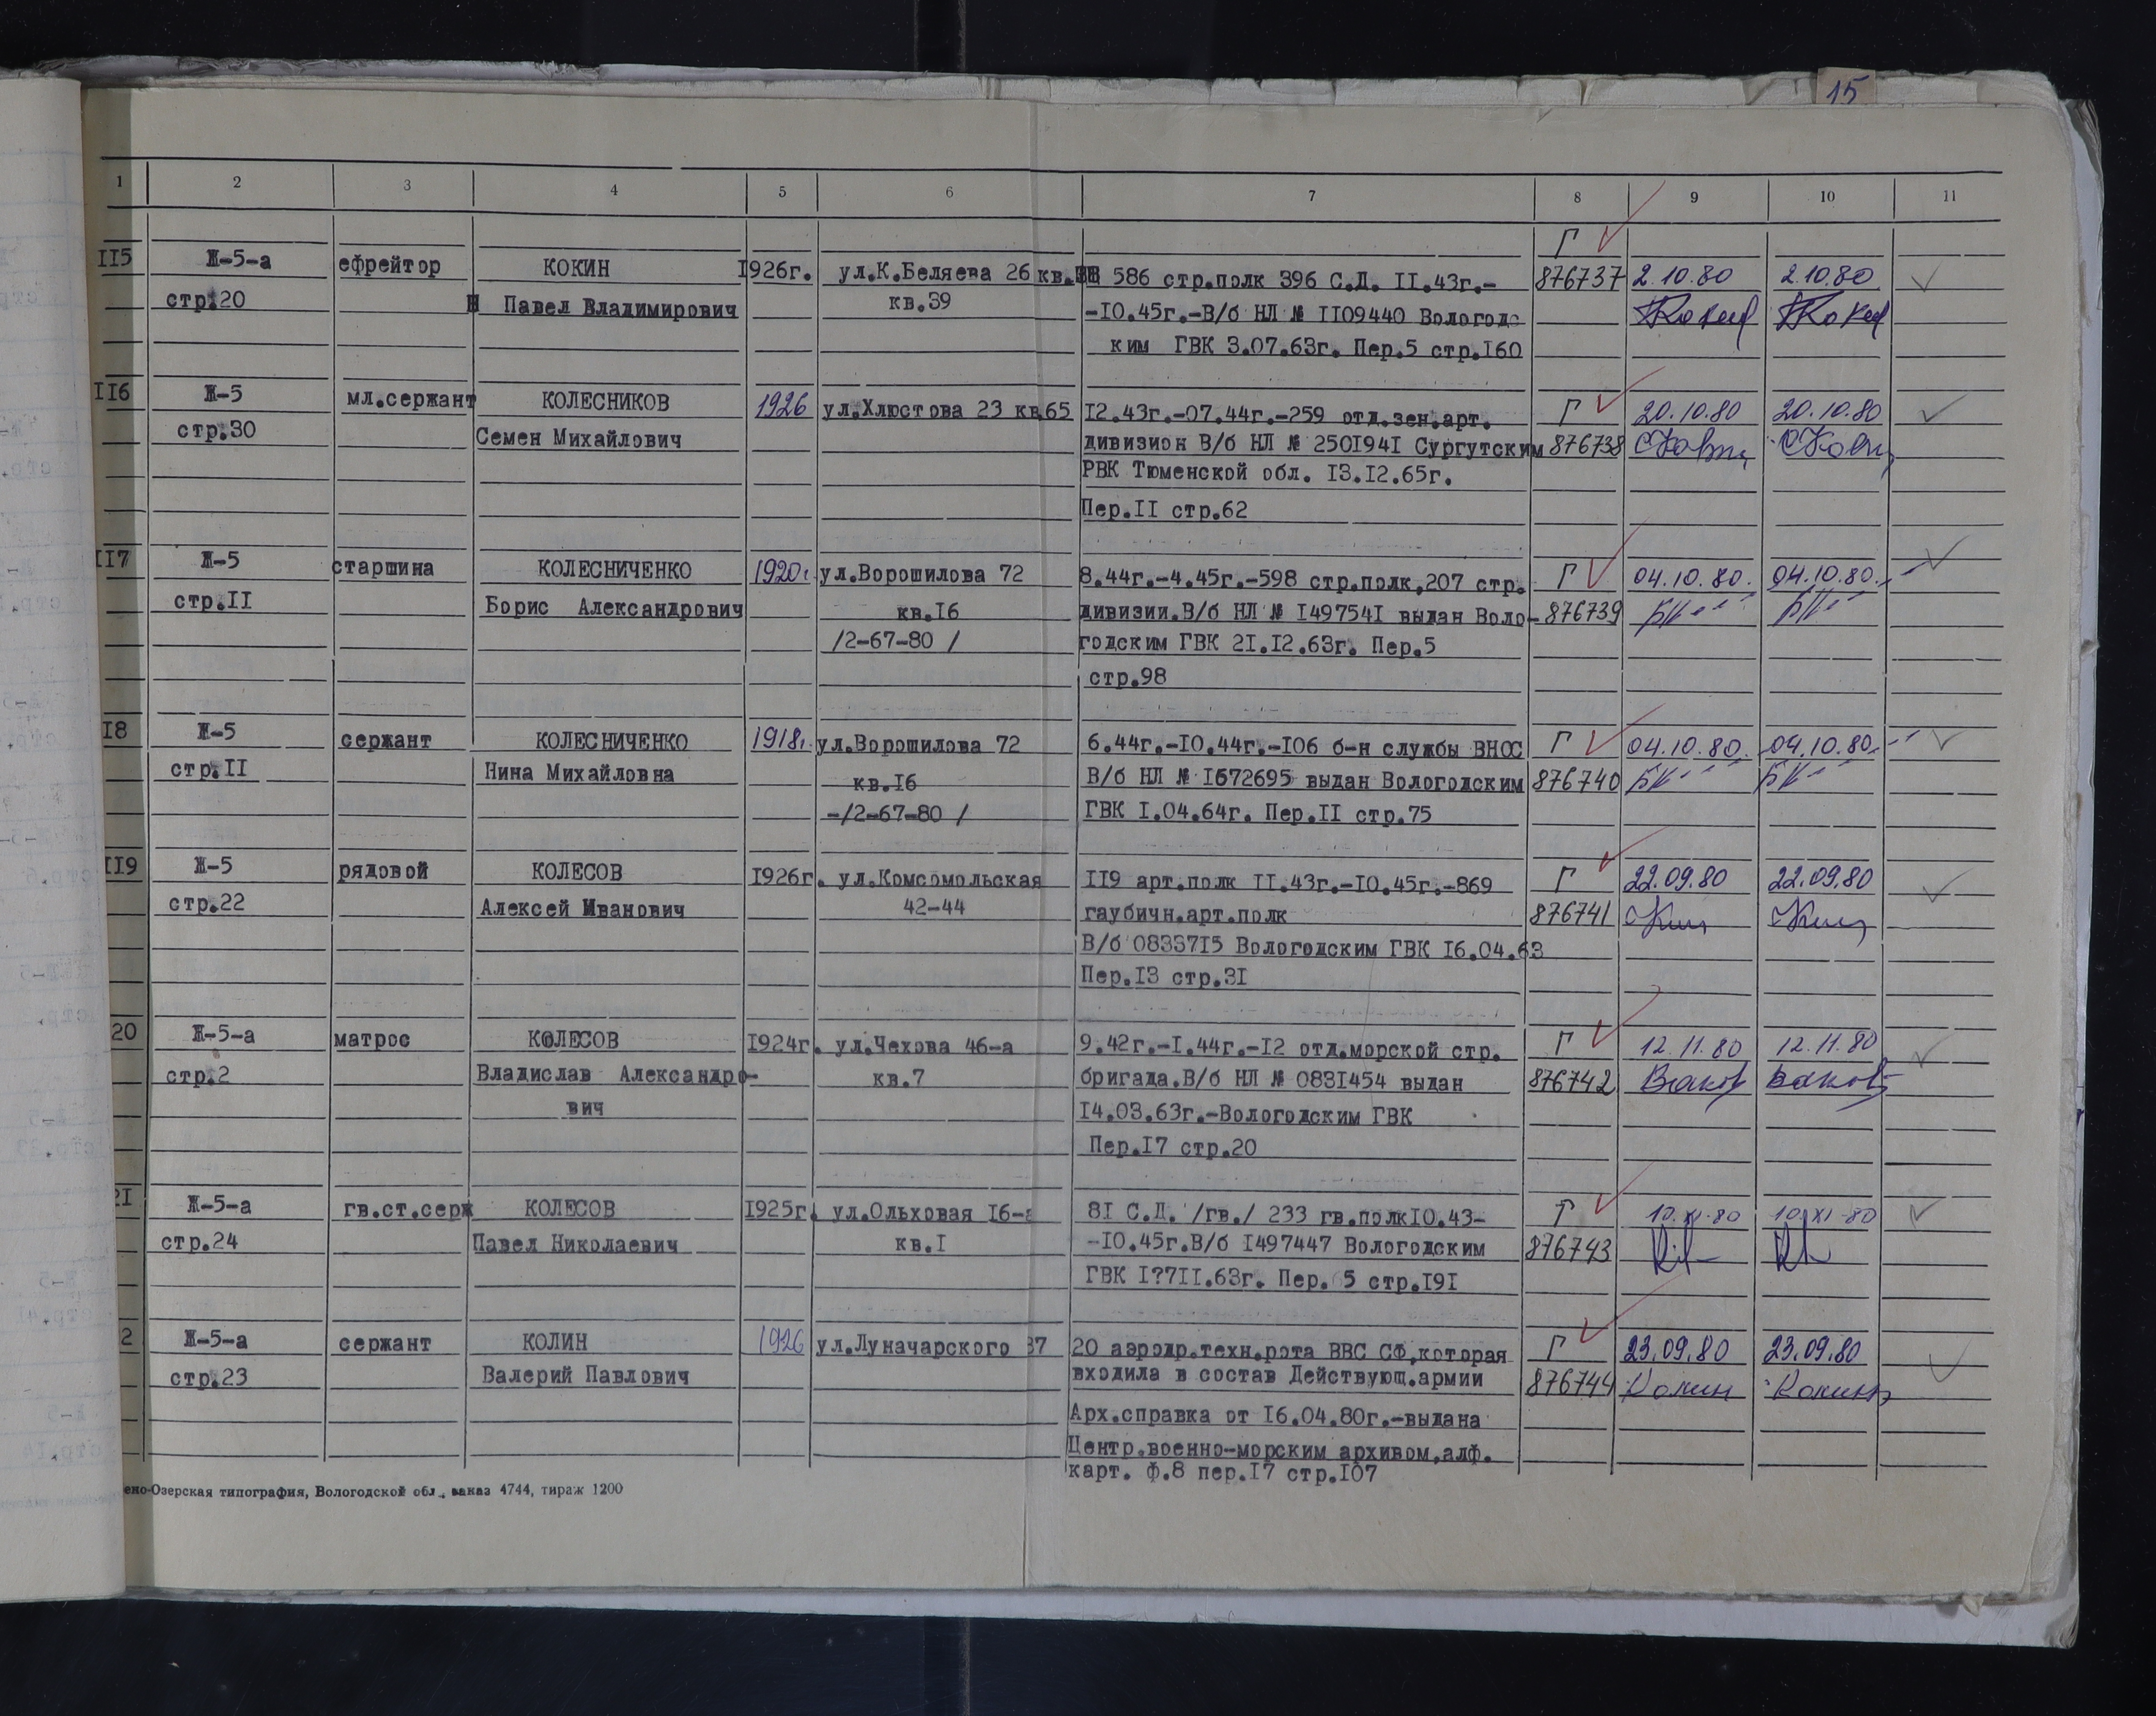 15
1 2 3 4 5 6 7 8 9 10 11
Г
II5 Ж-5-а ефрейтор КОКИН I926г. ул.К.Беляева 26 кв. 586 стр.полк 396 С.Д. II.43г.- 876737 2.10.80 2.10.80
стр.20 Павел Владимирович кв.39 -I0.45г.-В/б НЛ № II09440 Вологодс
ким ГВК 3.07.63г. Пер.5 стр.I60
II6 Ж-5 мл.сержант КОЛЕСНИКОВ 1926 ул.Хлюстова 23 кв65 I2.43г.-07.44г.-259 отд.зен.арт. Г 20.10.80 20.10.80
стр.30 Семен Михайлович дивизион В/б НЛ № 250I94I Сургутским 876738
РВК Тюменской обл. I3.I2.65г.
Пер.II стр.62
II7 Ж-5 старшина КОЛЕСНИЧЕНКО 1920г ул.Ворошилова 72 8.44г.-4.45г.-598 стр.полк,207 стр. Г 04.10.80. 04.10.80.
стр.II Борис Александрович кв.I6 дивизии.В/б НЛ № I49754I выдан Воло- 876739 БК БК
/2-67-80 / годским ГВК 2I.I2.63г. Пер.5
стр.98
I8 Ж-5 сержант КОЛЕСНИЧЕНКО 1918г. ул.Ворошилова 72 6.44г.-I0.44г.-I06 б-н службы ВНОС Г 04.10.80. 04.10.80.
стр.II Нина Михайловна кв.I6 В/б НЛ № I672695 выдан Вологодским 876740 БК БК
-/2-67-80 / ГВК I.04.64г. Пер.II стр.75
II9 Ж-5 рядовой КОЛЕСОВ I926г. ул.Комсомольская II9 арт.полк II.43г.-I0.45г.-869 Г 22.09.80 22.09.80
стр.22 Алексей Иванович 42-44 гаубичн.арт.полк 876741
В/б 08337I5 Вологодским ГВК I6.04.63
Пер.I3 стр.3I
20 Ж-5-а матрос КОЛЕСОВ I924г. ул.Чехова 46-а 9.42г.-I.44г.-I2 отд.морской стр. Г 12.11.80 12.11.80
стр.2 Владислав Александро- кв.7 бригада.В/б НЛ № 083I454 выдан 876742
вич I4.03.63г.-Вологодским ГВК
Пер.I7 стр.20
2I Ж-5-а гв.ст.серж КОЛЕСОВ I925г. ул.Ольховая I6-а 8I С.Д. /гв./ 233 гв.полкI0.43- Г 10.XI-80 10.XI-80
стр.24 Павел Николаевич кв.I -I0.45г.В/б I497447 Вологодским 876743
ГВК I?7II.63г. Пер. 5 стр.I9I
2 Ж-5-а сержант КОЛИН 1926 ул.Луначарского 37 20 аэродр.техн.рота ВВС СФ,которая Г 23.09.80 23.09.80
стр.23 Валерий Павлович входила в состав Действующ.армии 876744 Колин Колин
Арх.справка от I6.04.80г.-выдана
Центр.военно-морским архивом,алф.
карт. ф.8 пер.I7 стр.I07
ено-Озерская типография, Вологодской обл., заказ 4744, тираж 1200